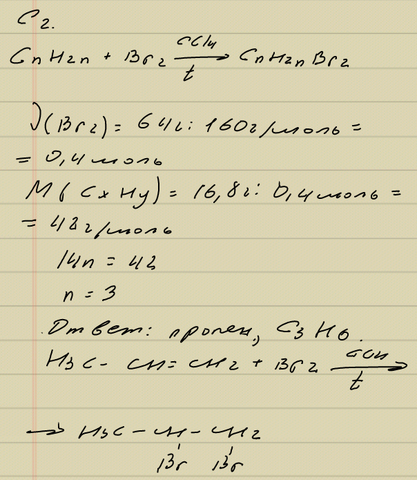 C2.
CnH2n + Br2 CCl4 → t CnH2nBr2
ν(Br2) = 64г : 160г/моль =
= 0,4 моль
M(CxHy) = 16,8г : 0,4 моль =
= 42г/моль
14n = 42
n = 3
Ответ: пропен, C3H6.
H3C - CH = CH2 + Br2 CCl4 → t
→ H3C - CH - CH2
Br Br